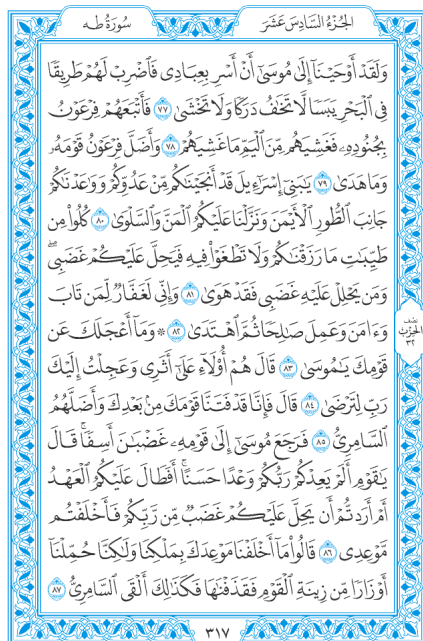 سُورَةُ طه الجُزْءُ السَّادِسَ عَشَرَ
وَلَقَدْ أَوْحَيْنَآ إِلَىٰ مُوسَىٰٓ أَنْ أَسْرِ بِعِبَادِى فَٱضْرِبْ لَهُمْ طَرِيقًا
فِى ٱلْبَحْرِ يَبَسًا لَّا تَخَٰفُ دَرَكًا وَلَا تَخْشَىٰ ٧٧ فَأَتْبَعَهُمْ فِرْعَوْنُ
بِجُنُودِهِۦ فَغَشِيَهُم مِّنَ ٱلْيَمِّ مَا غَشِيَهُمْ ٧٨ وَأَضَلَّ فِرْعَوْنُ قَوْمَهُۥ
وَمَا هَدَىٰ ٧٩ يَٰبَنِىٓ إِسْرَٰٓءِيلَ قَدْ أَنجَيْنَٰكُم مِّنْ عَدُوِّكُمْ وَوَٰعَدْنَٰكُمْ
جَانِبَ ٱلطُّورِ ٱلْأَيْمَنَ وَنَزَّلْنَا عَلَيْكُمُ ٱلْمَنَّ وَٱلسَّلْوَىٰ ٨٠ كُلُوا۟ مِن
طَيِّبَٰتِ مَا رَزَقْنَٰكُمْ وَلَا تَطْغَوْا۟ فِيهِ فَيَحِلَّ عَلَيْكُمْ غَضَبِى ۖ
وَمَن يَحْلِلْ عَلَيْهِ غَضَبِى فَقَدْ هَوَىٰ ٨١ وَإِنِّى لَغَفَّارٌ لِّمَن تَابَ
وَءَامَنَ وَعَمِلَ صَٰلِحًا ثُمَّ ٱهْتَدَىٰ ٨٢ ۞ وَمَآ أَعْجَلَكَ عَن
نصف الحزب ٣٢
قَوْمِكَ يَٰمُوسَىٰ ٨٣ قَالَ هُمْ أُو۟لَآءِ عَلَىٰٓ أَثَرِى وَعَجِلْتُ إِلَيْكَ
رَبِّ لِتَرْضَىٰ ٨٤ قَالَ فَإِنَّا قَدْ فَتَنَّا قَوْمَكَ مِنۢ بَعْدِكَ وَأَضَلَّهُمُ
ٱلسَّامِرِىُّ ٨٥ فَرَجَعَ مُوسَىٰٓ إِلَىٰ قَوْمِهِۦ غَضْبَٰنَ أَسِفًا ۚ قَالَ
يَٰقَوْمِ أَلَمْ يَعِدْكُمْ رَبُّكُمْ وَعْدًا حَسَنًا ۚ أَفَطَالَ عَلَيْكُمُ ٱلْعَهْدُ
أَمْ أَرَدتُّمْ أَن يَحِلَّ عَلَيْكُمْ غَضَبٌ مِّن رَّبِّكُمْ فَأَخْلَفْتُم
مَّوْعِدِى ٨٦ قَالُوا۟ مَآ أَخْلَفْنَا مَوْعِدَكَ بِمَلْكِنَا وَلَٰكِنَّا حُمِّلْنَآ
أَوْزَارًا مِّن زِينَةِ ٱلْقَوْمِ فَقَذَفْنَٰهَا فَكَذَٰلِكَ أَلْقَى ٱلسَّامِرِىُّ ٨٧
٣١٧